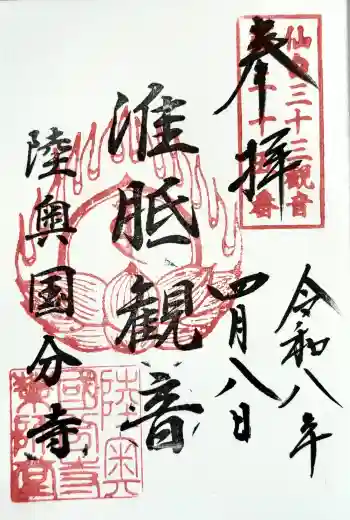 仙台三十三観音
奉拝
令和八年
四月八日
准胝観音
陸奥国分寺
陸奥
國分寺
薬師堂